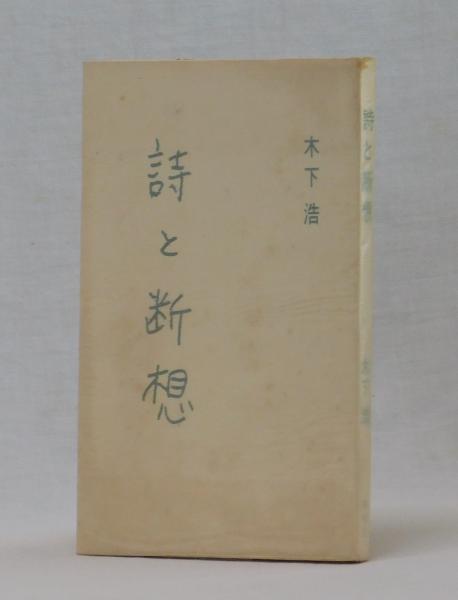 木下浩
詩と断想
詩と断想
木下浩